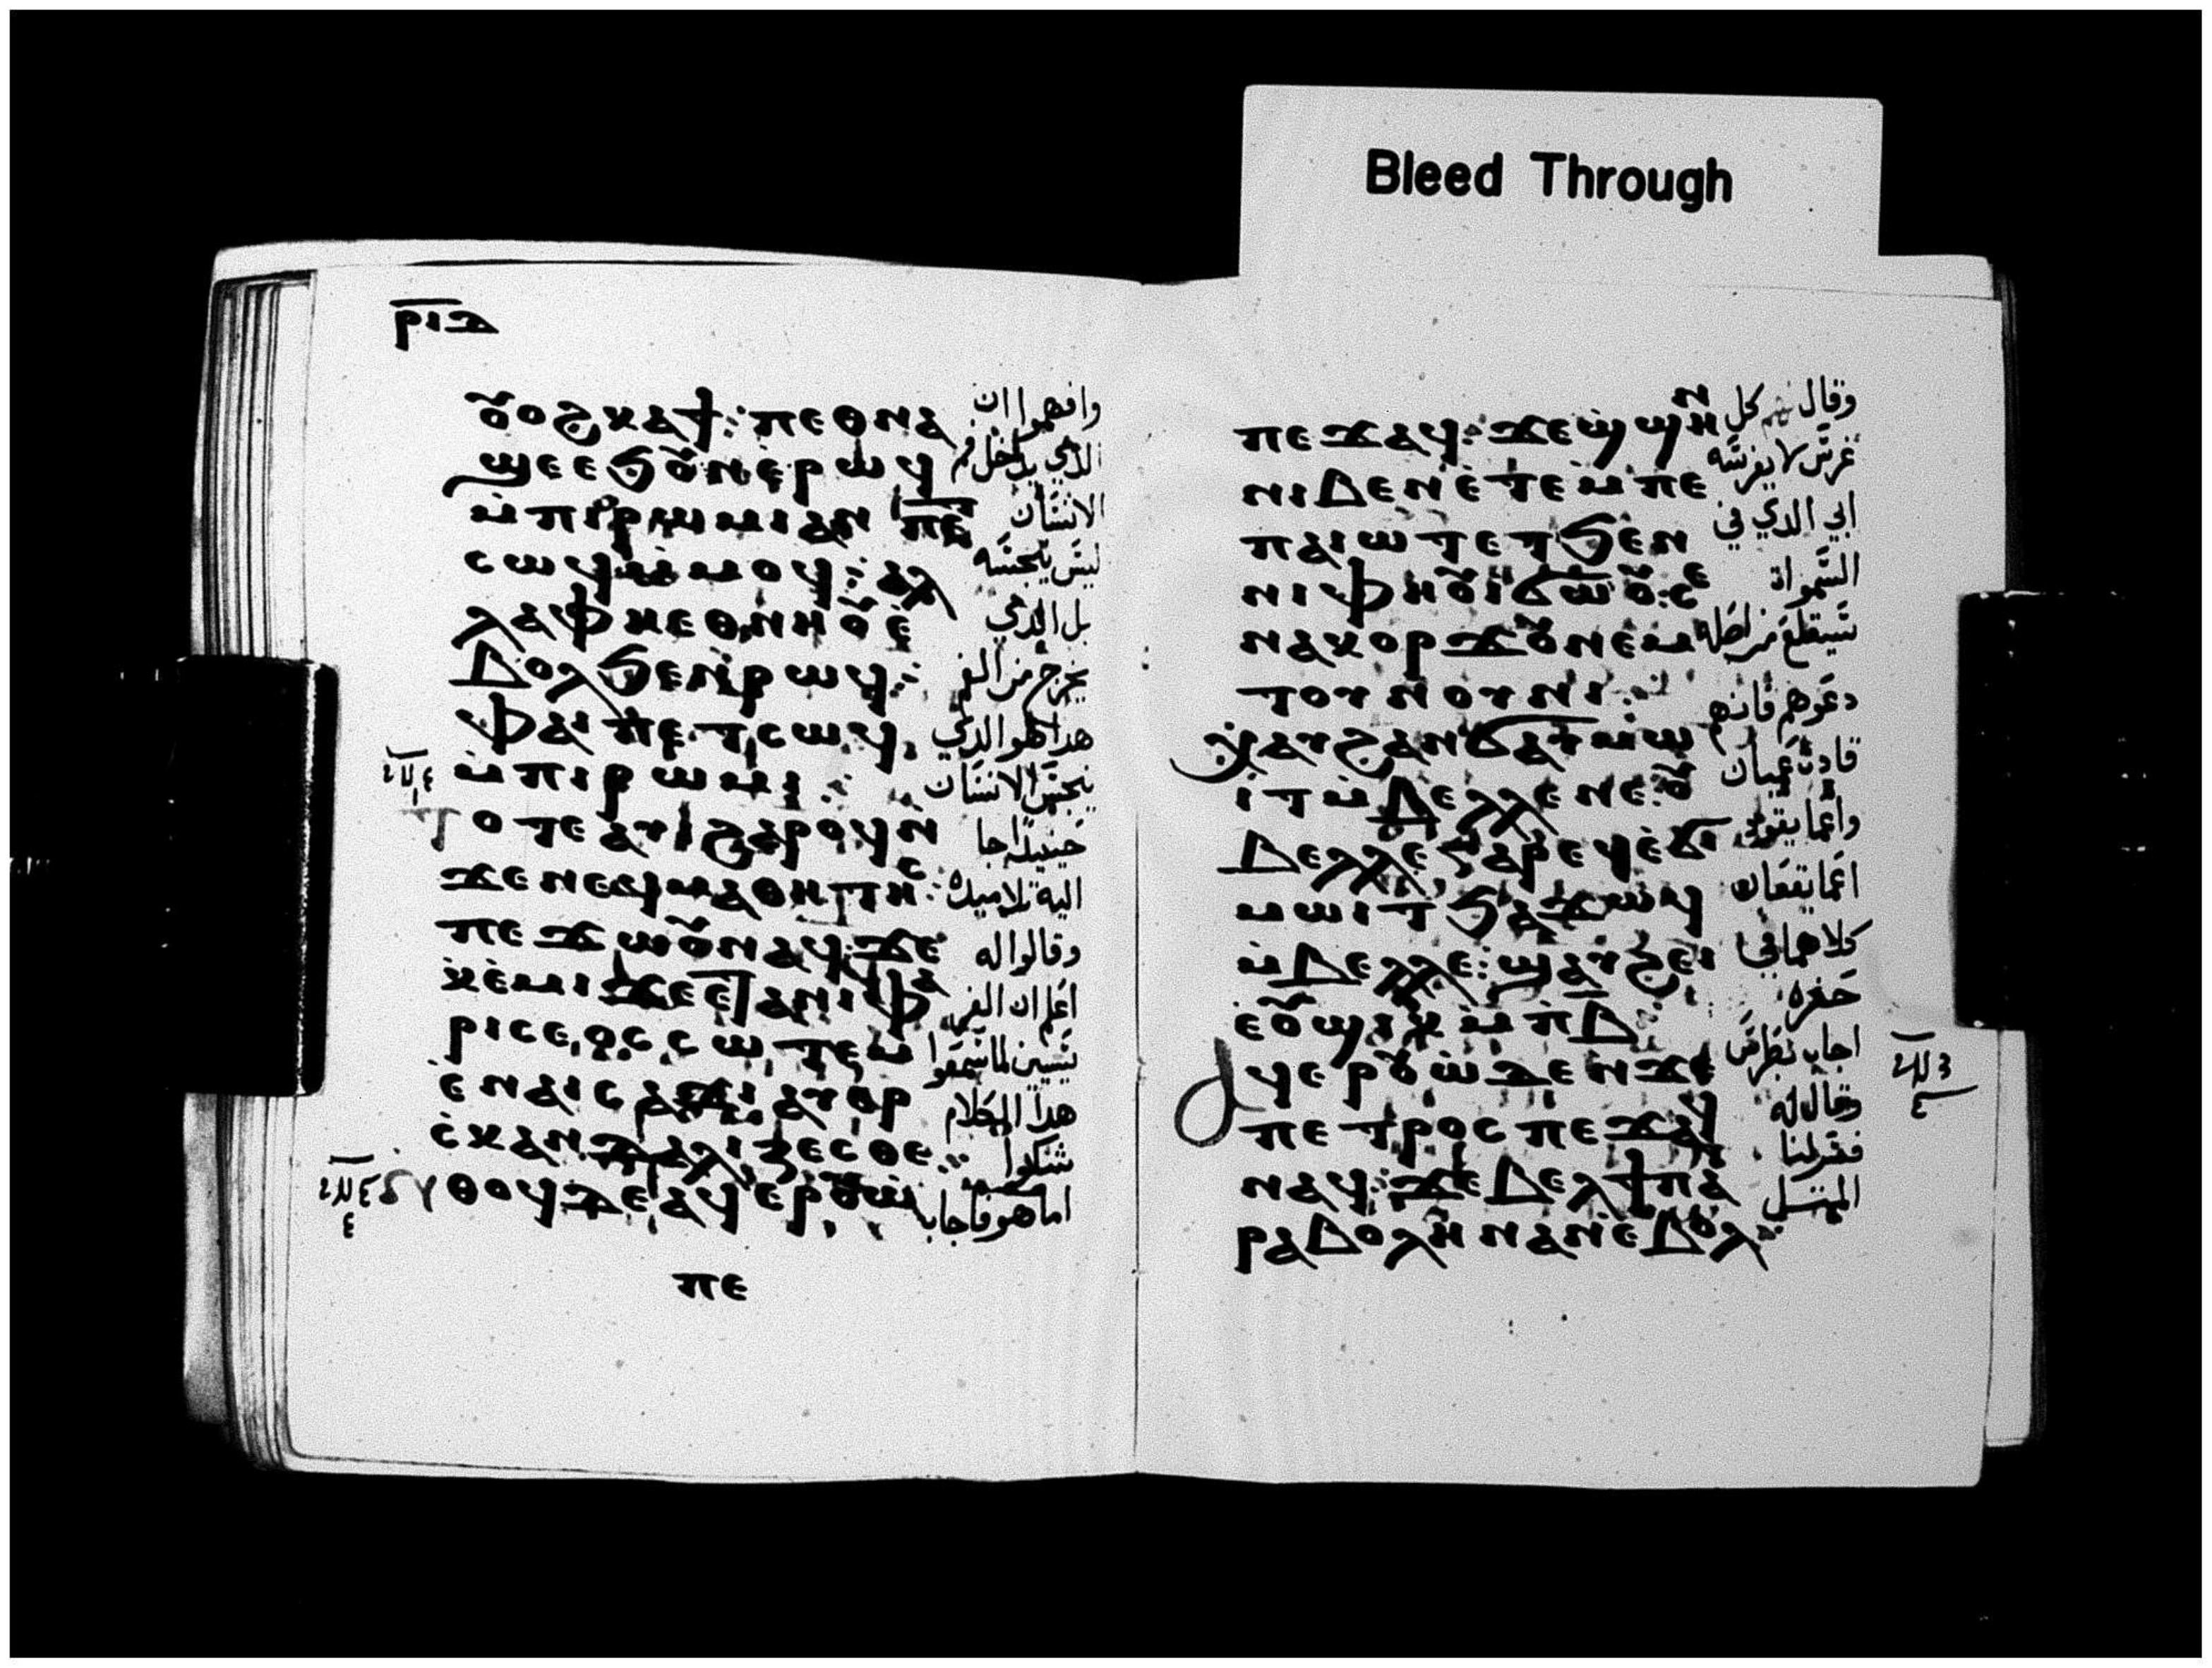 ⲣⲓⲇ
ⲟⲩⲟϩ ⲕⲁϯ: ⲡⲉⲑⲛⲁ وافهموا ان
ϣⲉ ⲉϧⲟⲩⲛ ⲉⲣⲱϥ الدي يدخل فم
ⲙ̀ⲡⲓⲣⲱⲙⲓ ⲁⲛ ⲡⲉⲧ الانسان
ⲥⲱϥ ⲙ̀ⲙⲟϥ: ⲁⲗ ليس ينجسه
ⲗⲁ ⲫⲏ ⲉⲑⲛⲏⲟⲩ ⲉ̀ بل الدي
ⲃⲟⲗ ϧⲉⲛ ⲣⲱϥ: يخرج من الفم
ⲫⲁⲓ ⲡⲉⲧⲥⲱϥ هدا هو الدي
ⲙ̀ⲡⲓⲣⲱⲙⲓ: ينجس الانسان
ⲧⲟⲧⲉ ⲁⲩⲓ̀ ϩⲁⲣⲟϥ ⲛ̀ حينيد جا
ϫⲉ ⲛⲉϥⲙⲁⲑⲏⲧⲏⲥ: اليه تلاميده
ⲡⲉϫⲱⲟⲩ ⲛⲁϥ: ϫⲉ وقالوا له
ⲭⲉ̀ⲙⲓ ϫⲉ ⲉⲧⲁ ⲛⲓⲫⲁ اعلم ان الفر
ⲣⲓⲥⲉⲟⲥ ⲥⲱⲧⲉⲙ يسيين لما سمعوا
ⲉ̀ⲡⲁⲓⲥⲁϫⲓ ⲁⲩⲉⲣ هدا الكلام
ⲥⲕⲁⲛⲇⲁⲗⲓⲍⲉⲥⲑⲉ: شكوا
ⲛⲑⲟϥ ⲇⲉ ⲁϥⲉⲣⲟⲩⲱ اما هو فاجاب
ⲡⲉ
Bleed Through
ⲡⲉϫⲁϥ: ϫⲉ ϣ̀ϣⲏⲛ وقال كل
ⲛⲓⲃⲉⲛ ⲉ̀ⲧⲉⲙ̀ⲡⲉ غرس لا يغرسه
ⲡⲁⲓⲱⲧ ⲉⲧϧⲉⲛ ابي الدي في
ⲛⲓⲫⲏⲟⲩⲓ̀ ϭⲱⲟⲩ: ⲥⲉ السمواة
ⲛⲁⲕⲟⲣϫⲟⲩ ⲛⲉⲙ سيقطع من اصله
ⲧⲟⲩⲛⲟⲩⲛⲓ: دعوهم فانهم
ⲭⲁⲩ ϩⲁⲛϭⲁⲩⲙⲱ قادة عميان
ⲓⲧ ⲙ̀ⲃⲉⲗⲗⲉ ⲛⲉ: ⲟⲩ واعما يقود
ⲃⲉⲗⲗⲉ ⲁⲣⲉϥⲉ̀ϭⲓ اعما يقعان
ⲙⲱⲓⲧ ϧⲁϫⲱϥ كلاهما في
ⲙ̀ⲃⲉⲗⲗⲉ: ϣⲁⲩϩⲉⲓ حفره
ⲉ̀ⲟⲩϣⲓⲕ ⲙ̀ⲡⲃ: اجاب بطرس
ⲁϥⲉⲣⲟⲩⲱ̀ ⲇⲉ ⲛ̀ϫⲉ وقال له
ⲡⲉⲧⲣⲟⲥ ⲡⲉϫⲁϥ فسر لنا
ⲛⲁϥ: ϫⲉ ⲃⲉⲗ ϯⲡⲁ المتل
ⲣⲁⲃⲟⲗⲏ ⲛⲁⲛ ⲉ̀ⲃⲟⲗ: